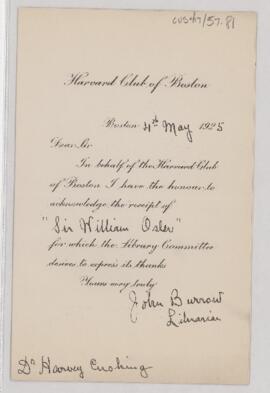 CUS417/57.81
Harvard Club of Boston
Boston 4th May 1925
Dear Sir
In behalf of the Harvard Club
of Boston I have the honour to
acknowledge the receipt of
"Sir William Osler"
for which the Library Committee
desires to express its thanks
Yours very truly
John Burrow
Librarian
Dr Harvey Cushing